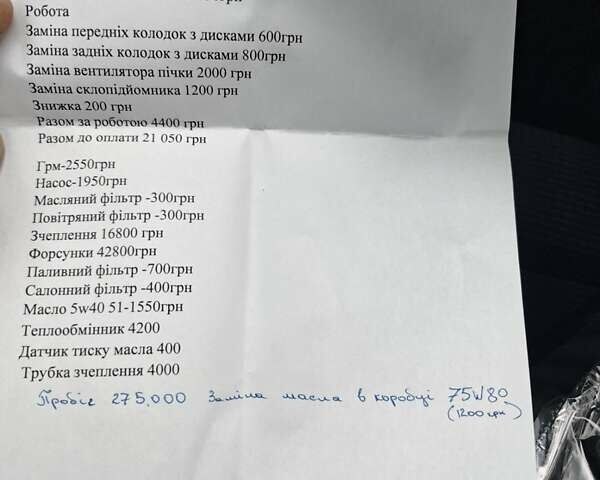 Робота
Заміна передніх колодок з дисками 600грн
Заміна задніх колодок з дисками 800грн
Заміна вентилятора пічки 2000 грн
Заміна склопідйомника 1200 грн
Знижка 200 грн
Разом за роботою 4400 грн
Разом до оплати 21 050 грн
Грм-2550грн
Насос-1950грн
Масляний фільтр -300грн
Повітряний фільтр -300грн
Зчеплення 16800 грн
Форсунки 42800грн
Паливний фільтр -700грн
Салонний фільтр -400грн
Масло 5w40 51-1550грн
Теплообмінник 4200
Датчик тиску масла 400
Трубка зчеплення 4000
Пробіг 275.000 Заміна масла в коробці 75W80
(1200грн)